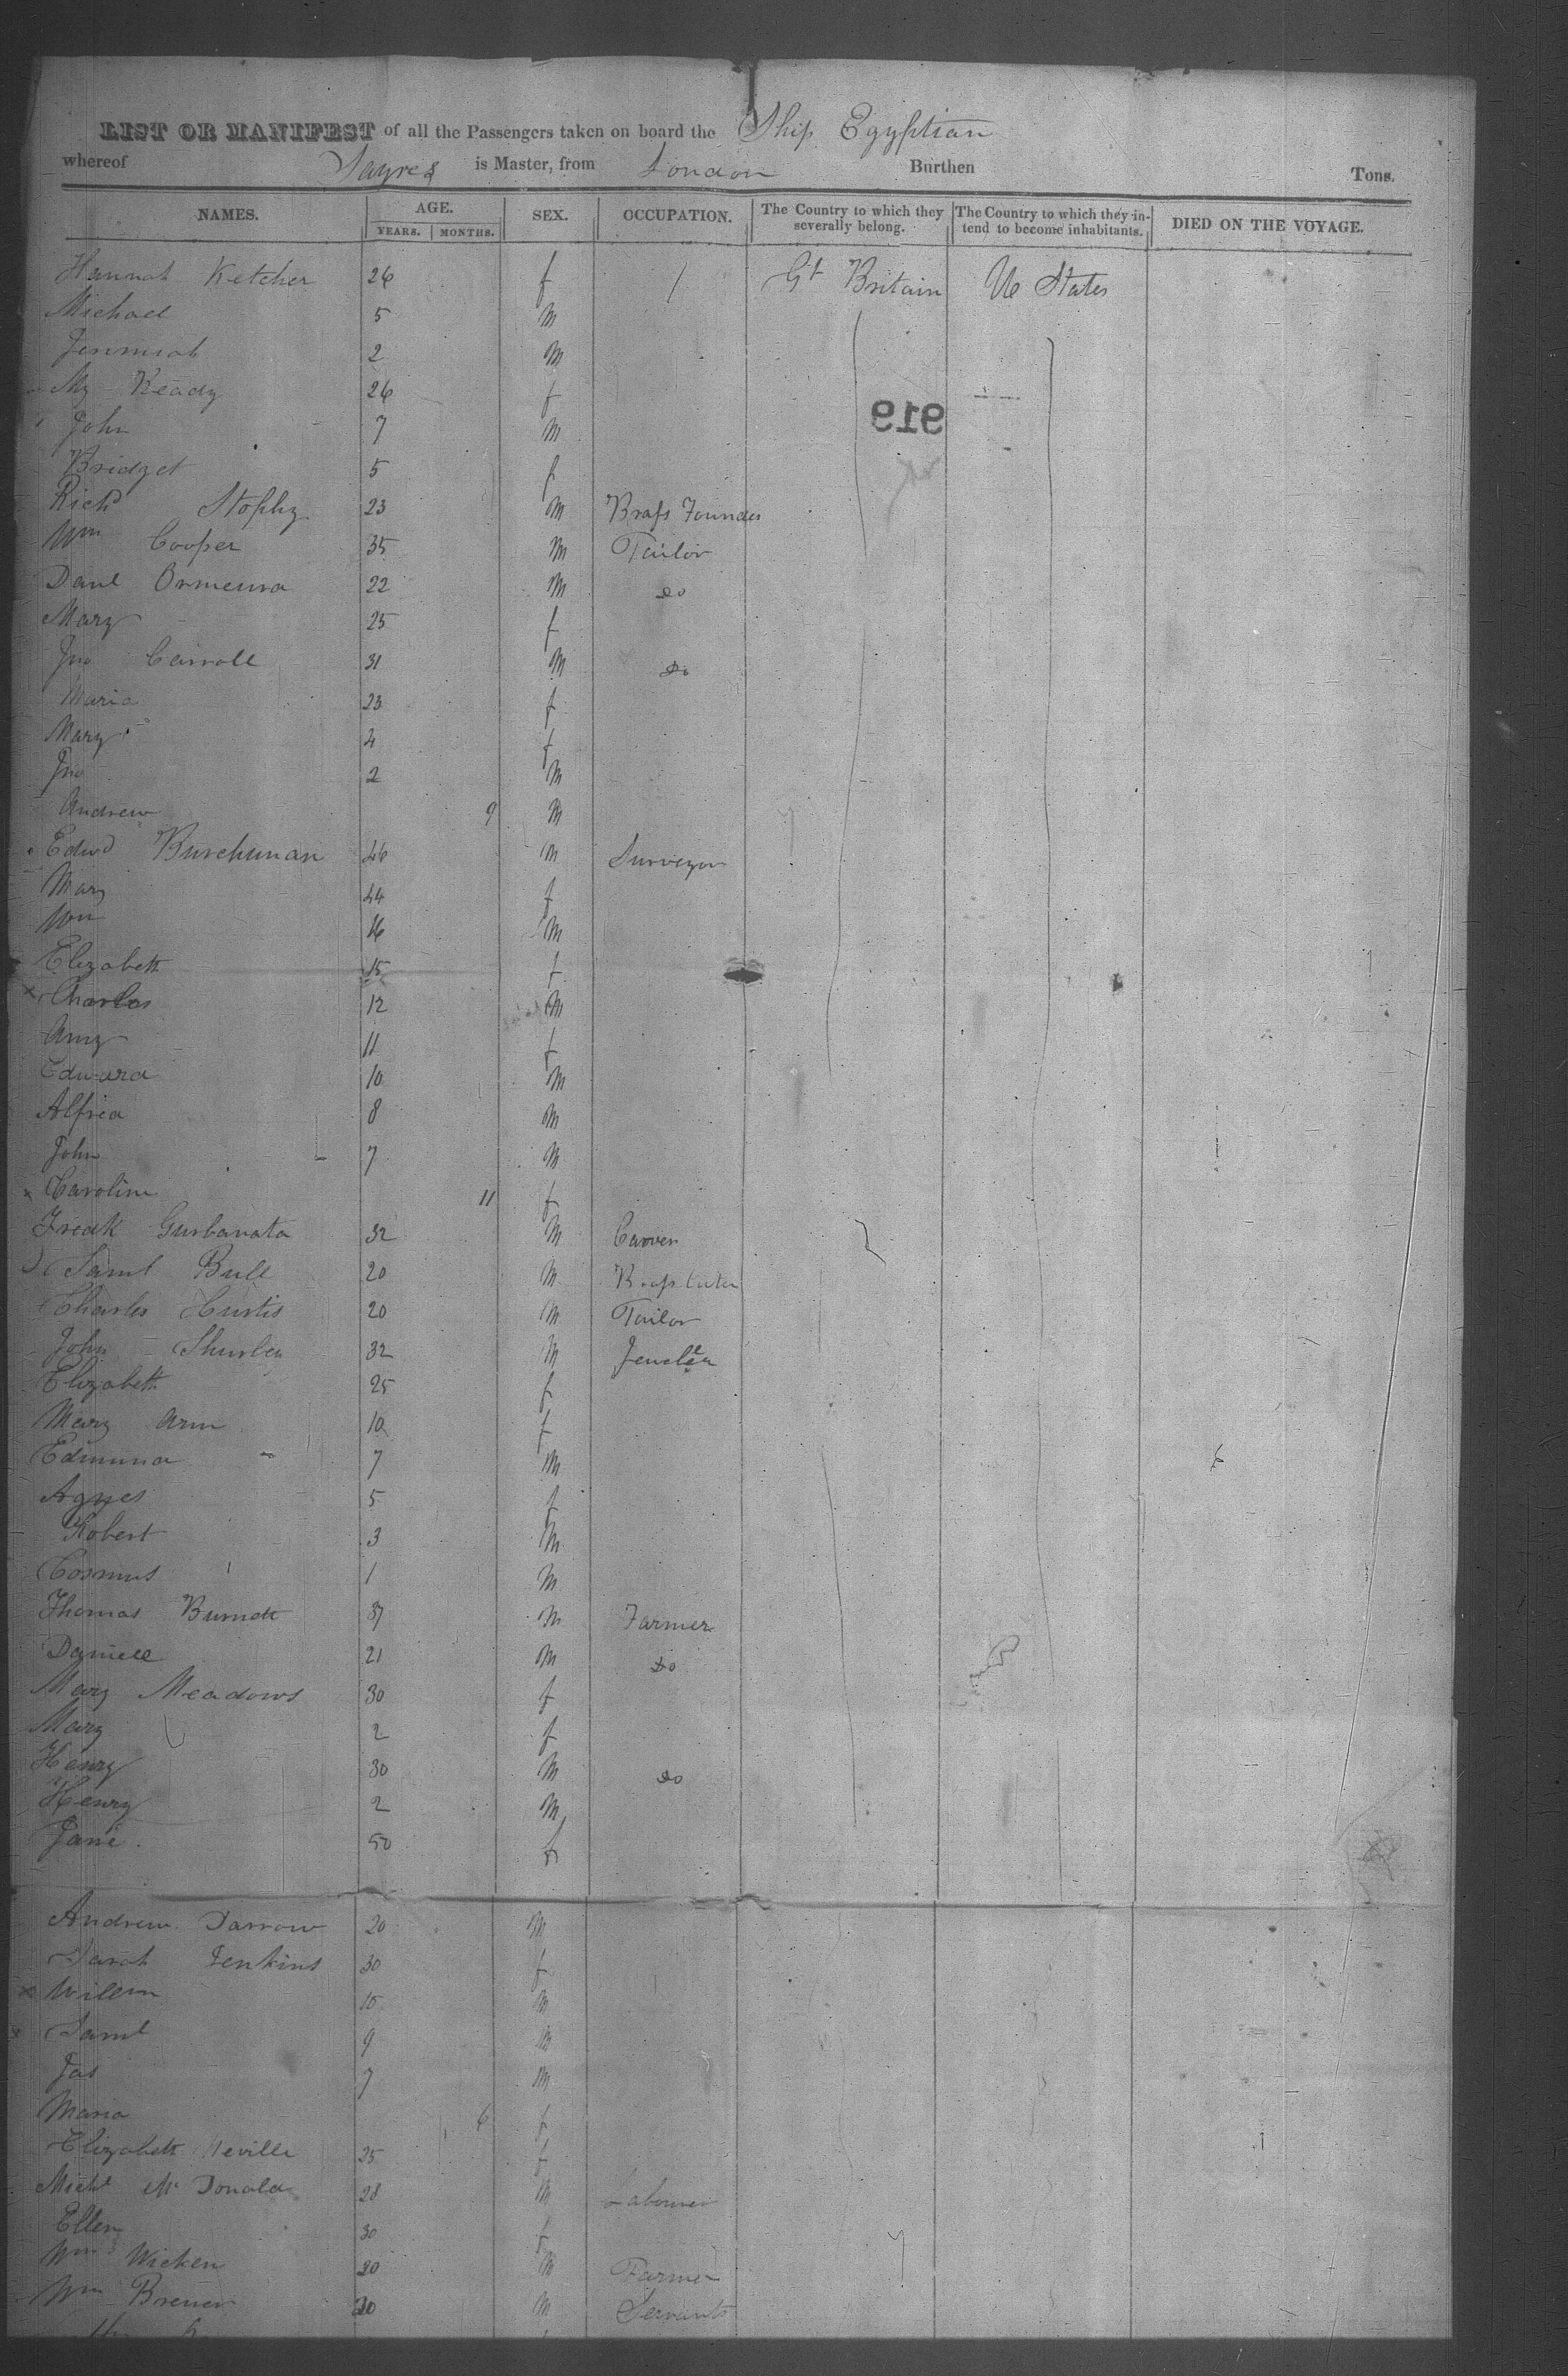 LIST OR MANIFEST of all the Passengers taken on board the Ship Egyptian
whereof Sayres is Master, from London Burthen Tons.
NAMES. AGE. SEX. OCCUPATION. The Country to which they severally belong. The Country to which they intend to become inhabitants. DIED ON THE VOYAGE.
YEARS. MONTHS.
Hannah Ketcher 26 f / Gt Britain U States
Michael 5 M
Jeremiah 2 M
My Keady 26 f
919
John 7 M
Bridget 5 f
Richd Stophy 23 M Brass Founder
Wm Cooper 35 M Tailor
Danl 22 M do
Mary 25 f
Jno Carroll 31 M do
Maria 23 f
Mary 4 f
Jno 2 M
Andrew 9 M
Edwd Burchunan 46 M Surveyor
Mary 44 f
Wm 16 M
Elizabeth 15 f
Charles 12 M
Amy 11 f
Edward 10 M
Alfred 8 M
John 7 M
Caroline 11 f
Fredk 32 M Carver
Saml Bull 20 M
Charles Curtis 20 M Tailor
John Shurley 32 M Jeweler
Elizabeth 25 f
Mary Ann 10 f
Edmund 7 M
Agnes 5 f
Robert 3 M
Cosmus 1 M
Thomas Burnett 37 M Farmer
Daniell 21 M do
Mary Meadows 30 f
Mary 2 f
Henry 30 M do
Henry 2 M
Jane 50 f
Andrew Darrow 20 M
Sarah Jenkins 30 f
Willm 10 M
Saml 9 M
Jas 7 M
Maria 6 f
Elizabeth Neville 25 f
Michl Mc Donald 28 M Labourer
Ellen 30 f
Wm Wicken 20 M Farmer
Wm Brewer 20 M Servants